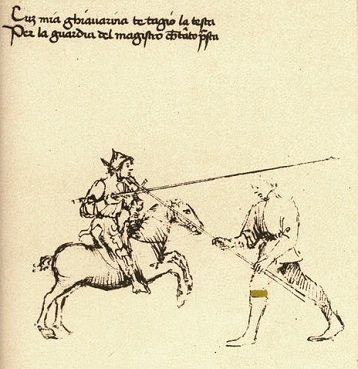 Cuʒ mia ghiavarina te tagio la testa
Per la guardia del magistro ch̃ tãto p̃sta